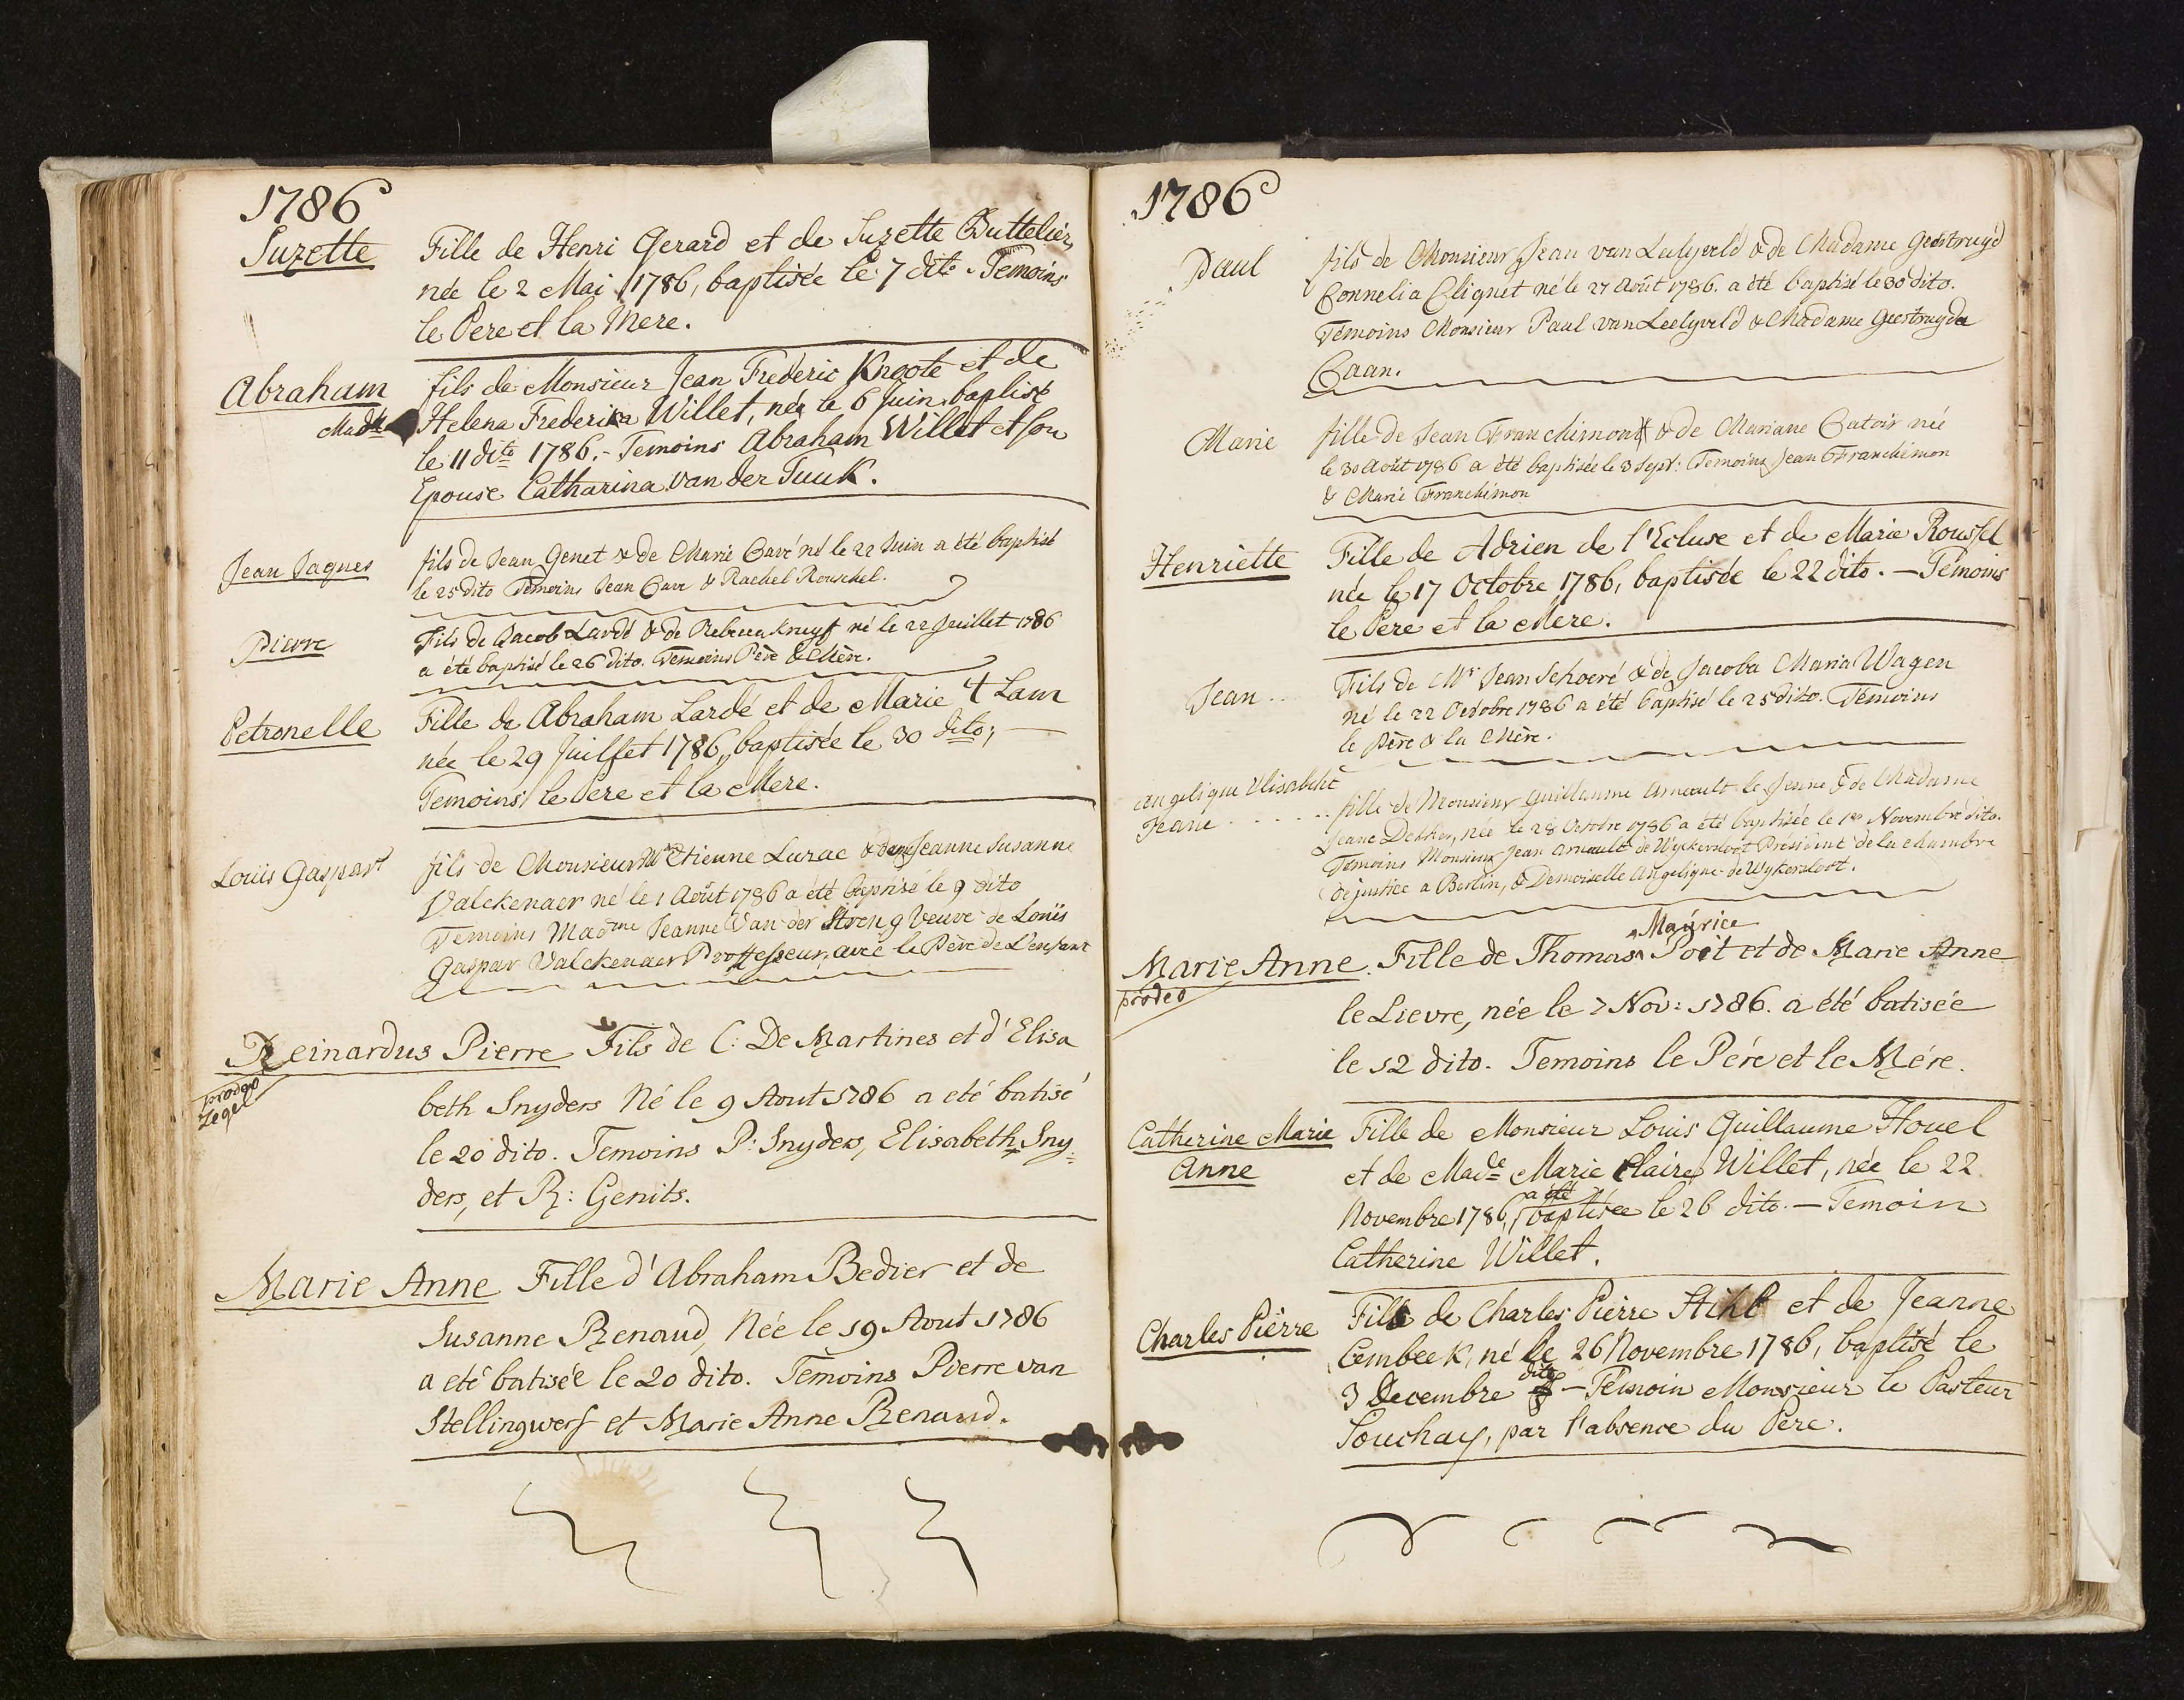 1786
Suzette Fille de Henri Gerard et de Suzette Buttelier,
née le 2 Mai 1786, baptisée le 7 dito. Temoins
le Pere et la Mere.
Abraham fils de Monsieur Jean Frederic Knoote et de
Made Helena Frederika Willet, né le 6 Juin baptisé
le 11 dito 1786.- Temoins Abraham Willet et son
Epouse Catharina van der Tuuk.
Jean Jaques fils de Jean Genet & de Marie Cavé né le 22 Juin a été baptisé
le 25 dito Temoins Jean Cave & Rachel Rouschel.
Pierre Fils de Jacob Lardé & de Rebecca Kruyf né le 22 Juillet 1786
a été baptisé le 26 dito. Temoins Père & Mère.
Petronelle Fille de Abraham Lardé et de Marie 't Lam
née le 29 Juillet 1786, baptisée le 30 dito;
Temoins le Pere et la Mere.
Louis Gaspart fils de Monsieur Etienne Luzac & Jeanne Susanne
Valckenaer né le 1 Août 1786 a été baptisé le 9 dito
Temoins Madme Jeanne Van der Streng Veuve de Louïs
Gaspar Valckenaer Professeur, avec le Père de L'enfant
Reinardus Pierre Fils de C: De Martines et d'Elisa
prodeo
Zegel
beth Snyders Né le 9 Aout 1786 a eté batisé
le 20 dito. Temoins P: Snyders, Elisabeth Sny:
ders, et R: Genits.
Marie Anne Fille d'Abraham Bedier et de
Susanne Renaud, Née le 19 Aout 1786
a eté batisée le 20 dito. Temoins Pierre van
Stellingwerf et Marie Anne Renaud.
1786
Paul fils de Monsieur Jean van Lelyveld & de Madame Geertruyd
Cornelia Clignet né le 27 Août 1786. a été baptisé le 30 dito.
Temoins Monsieur Paul van Lelyveld & Madame Geertruyda
Caan.
Marie fille de Jean Franchimont & de Mariane Catoir née
le 30 Août 1786 a été baptisée le 3 Sept: Temoins Jean Franchimon
& Marie Franchimon
Henriette Fille de Adrien de l'Ecluse et de Marie Roussel
née le 17 Octobre 1786, baptisée le 22 dito. — Temoins
le Pere et la Mere.
Jean .. Fils de Mr Jean Schoeré & de Jacoba Maria Wagen
né le 22 Octobre 1786 a été baptisé le 25 dito. Temoins
le Père & la Mère.
Angelique Elisabeth
Jeane ...... fille de Monsieur Guillaume Arnault le Jeune & de Madame
Jeane Dekker, née le 28 Octobre 1786 a été baptisée le 1er Novembre dito.
Temoins Monsieur Jean Arnault de Wyckersloot Président de la chambre
de justice a Berlin, & Demoiselle Angelique de Wykersloot.
Maurice
Marie Anne. Fille de Thomas Poit et de Marie Anne
prodeo
le Lievre, née le 7 Nov: 1786. a été batisée
le 12 dito. Temoins le Pére et le Mére.
Catherine Marie Fille de Monsieur Louis Guillaume Hovel
Anne et de Made Marie Claire Willet, née le 22
a été
Novembre 1786, baptisée le 26 dito. — Temoin
Catherine Willet.
Charles Pierre Fils de Charles Pierre Stihl et de Jeanne
Cembeek, né le 26 Novembre 1786, baptisé le
dito
3 Decembre — Temoin Monsieur le Pasteur
Souchay, par l'absence du Pere.